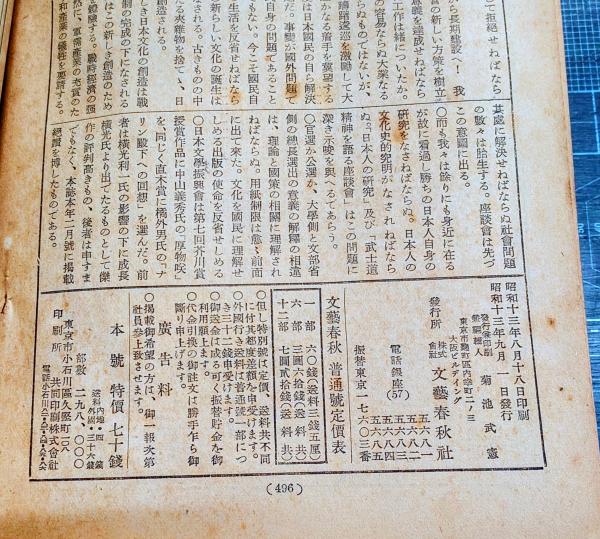 て拒絕せねばなら
ら長期建設へ！　我
の新しい方策を樹立
意慾を達成せねばなら
工作は緖についたか。
ものではないが、
の容易なら大業なる
躊躇逡巡を激勵して大
かなる着手を要望する
は日本國民の自ら解決
た。事變が國外問題で
自身の問題であること
もない。今こそ國民自
生活を反省せねばなら
新らしい文化の誕生は
なされる。古きもの中
た夾雜物を捨て、日
創造される。
しき日本文化の創造は戰
制の完成の下になされる
はこの新しき創造のため
鍊する。戰時經濟の强
然に、軍需產業の充實のた
和產業の犧牲を要請する。
其處に解決せねばならぬ社會問題
の數々は胎生する。座談會は先づ
この意圖に出る。
○而も我々は餘りにも身近に在る
が故に看過し勝ちの日本人自身の
硏究をなさねばならぬ。日本人の
文化史的究明がなされねばなら
ぬ。「日本人の硏究」及び「武士道
精神を語る座談會」はこの問題に
深き示唆を與へるであらう。
○官選か公選か、大學側と文部省
側の總長選出の意義の解釋の相違
は、理論と國策の相關に理解され
ねばならぬ。用紙制限は愈〻前面
に出て來た。文化を國民に理解せ
しめる出版の使命を反省せしめる
○日本文學振興會は第七回芥川賞
授賞作品に中山義秀氏の「厚物咲」
を同じく直木賞に橘外男氏の「ナ
リン殿下への回想」を選んだ。前
者は橫光利一氏の影響の下に成長
橫光氏より出でたるものとして傑
作の評判高きもの、後者は申すま
でもなく、本誌本年二月號に揭載
絕讚を博したものである。
昭和十三年八月十八日印刷
昭和十三年九月一日發行
發行兼印刷
兼編輯人　菊池武憲
東京市麴町區內幸町二ノ三
大阪ビルディング
發行所　株式會社　文藝春秋社
電話銀座(57)
五六八一
五六八二
五六八三
五六八四
五六八五
振替東京一七六〇三番
文藝春秋　普通號定價表
一部　六〇錢（送料三錢五厘）
六部　三圓六拾錢（送料共）
十二部　七圓貳拾錢（送料共）
○但し特別號は定價、送料共不同
に付其都度差額を申受けます。
○外國行送料は普通號一部につ
き三十二錢申受けます。
○御送金は成る可く振替貯金を御
利用願上ます。
○代金引換の御注文は勝手乍ら御
斷り申上げます。
廣告料
○揭載御希望の方は、御一報次第
社員參上致させます。
本號　特價七十錢
送料內地・四錢
外國・三十六錢
部數　二九八、〇〇〇
東京市小石川區久堅町一〇八
印刷所　共同印刷株式會社
(496)